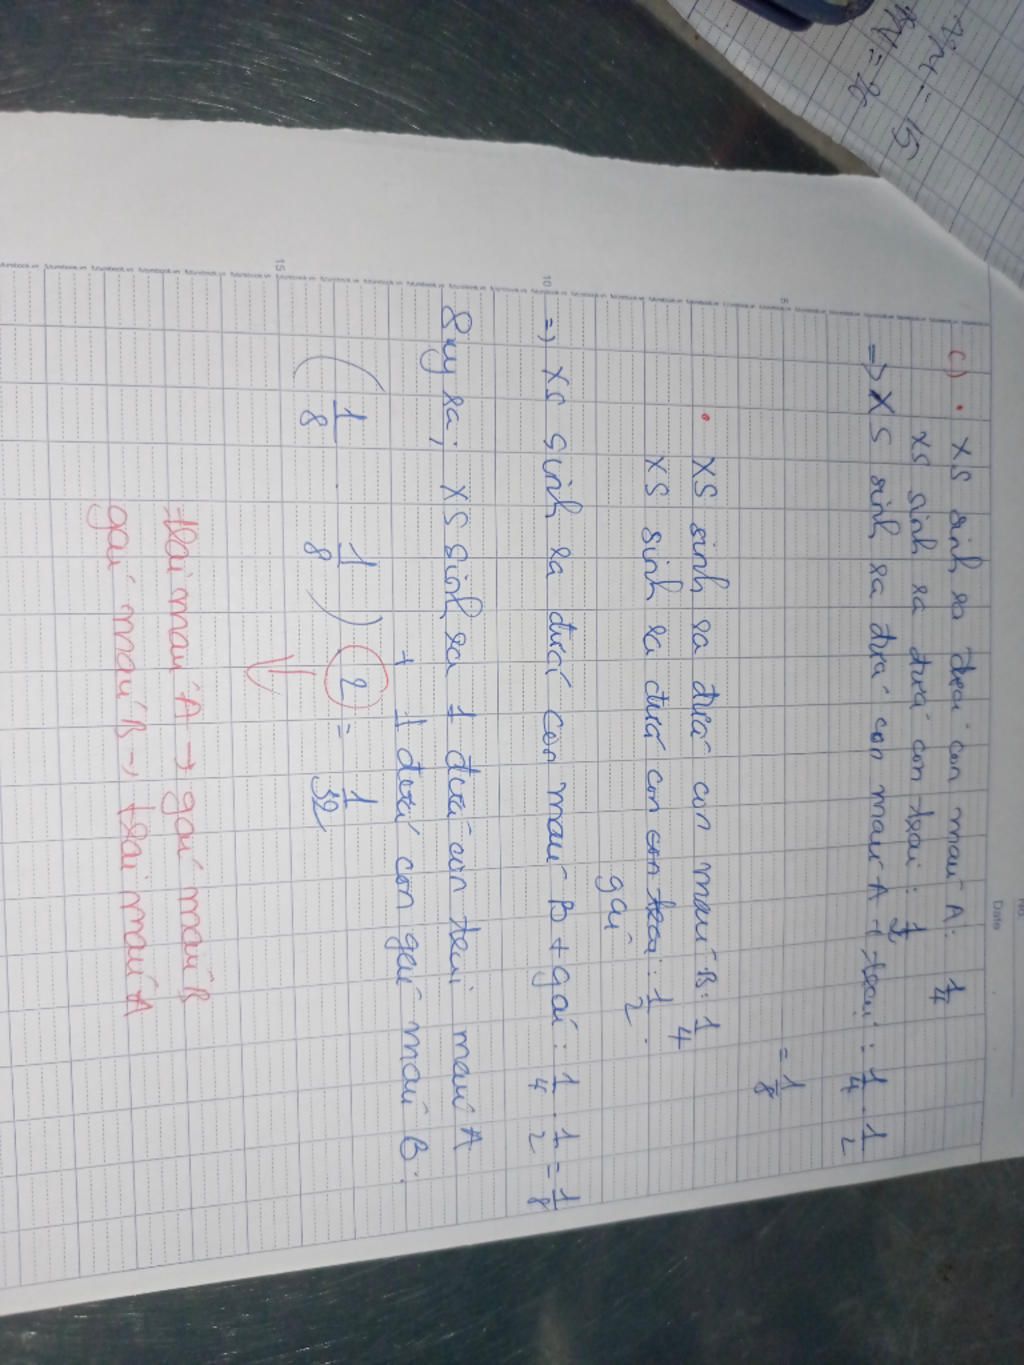 No.
Date
c) • XS sinh ra đứa con máu A: 1/4
XS sinh ra đứa con trai: 1/2
=> XS sinh ra đứa con máu A + trai: 1/4 . 1/2
= 1/8
5
• XS sinh ra đứa con máu B: 1/4
XS sinh ra đứa con con trai: 1/2.
gái
10
=) XS sinh ra đứa con máu B + gái: 1/4 . 1/2 = 1/8
Suy ra; XS sinh ra 1 đứa con trai máu A
+ 1 đứa con gái máu B.
(1/8 . 1/8) 2 = 1/32
15
trai máu A → gái máu B
gái máu B → trai máu A